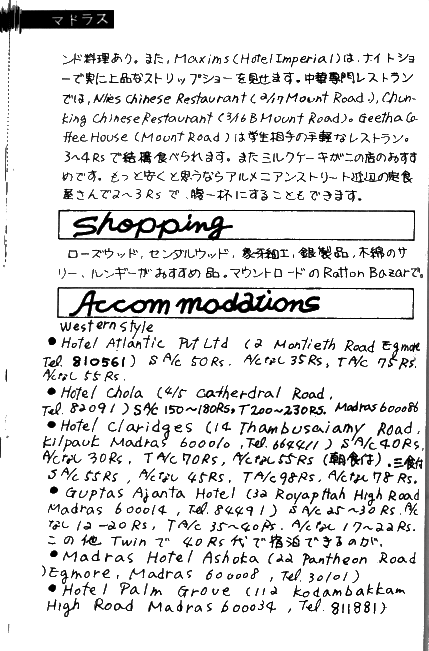 マドラス
ンド料理あり。また，Maxims(Hotel Imperial)は，ナイトショ
ーで実に上品なストリップショーを見せます。中華専門レストラン
では，Nles Chinese Restaurant (2/17 Mount Road.), Chun-
king Chinese Restaurant (3/16 B Mount Road)。Geetha Co
ffee House (Mount Road)は学生相手の手軽なレストラン。
3～4Rsで結構食べられます。またミルクケーキがこの店のおすす
めです。もっと安くと思うならアルメニアンストリート近辺の定食
屋さんで2～3Rsで，腹一杯にすることもできます。
Shopping
ローズウッド，センダルウッド，象牙細工，銀製品，木綿のサ
リー，ルンギーがおすすめ品。マウントロードのRatton Bazarで。
Accommodations
Western style
●Hotel Atlantic Pvt Ltd (2 Montieth Road Egmore
Tel. 810561) S A/c 50Rs. A/cなし35Rs, T A/c 75Rs.
A/cなし55Rs.
●Hotel Chola (4/5 Catherdral Road,
Tel. 82091) S A/c 150～180Rs, T 200～230Rs. Madras 600086
●Hotel Claridges (14 Thambusaiamy Road.
Kilpauk Madras 600010, Tel. 644411) S A/c 40Rs,
A/cなし30Rs, T A/c 70Rs, A/cなし55Rs (朝食付)。三食付
S A/c 55Rs, A/cなし45Rs, T A/c 98Rs, A/cなし78Rs.
●Guptas Ajanta Hotel (32 Royapttah High Road
Madras 600014, Tel. 84491) S A/c 25～30Rs. A/c
なし12～20Rs, T A/c 35～40Rs. A/cなし17～22Rs.
この他Twinで40Rs代で宿泊できるのが，
●Madras Hotel Ashoka (22 Pantheon Road
)Egmore, Madras 600008, Tel. 30101)
●Hotel Palm Grove (112 Kodambakkam
High Road Madras 600034, Tel. 811881)